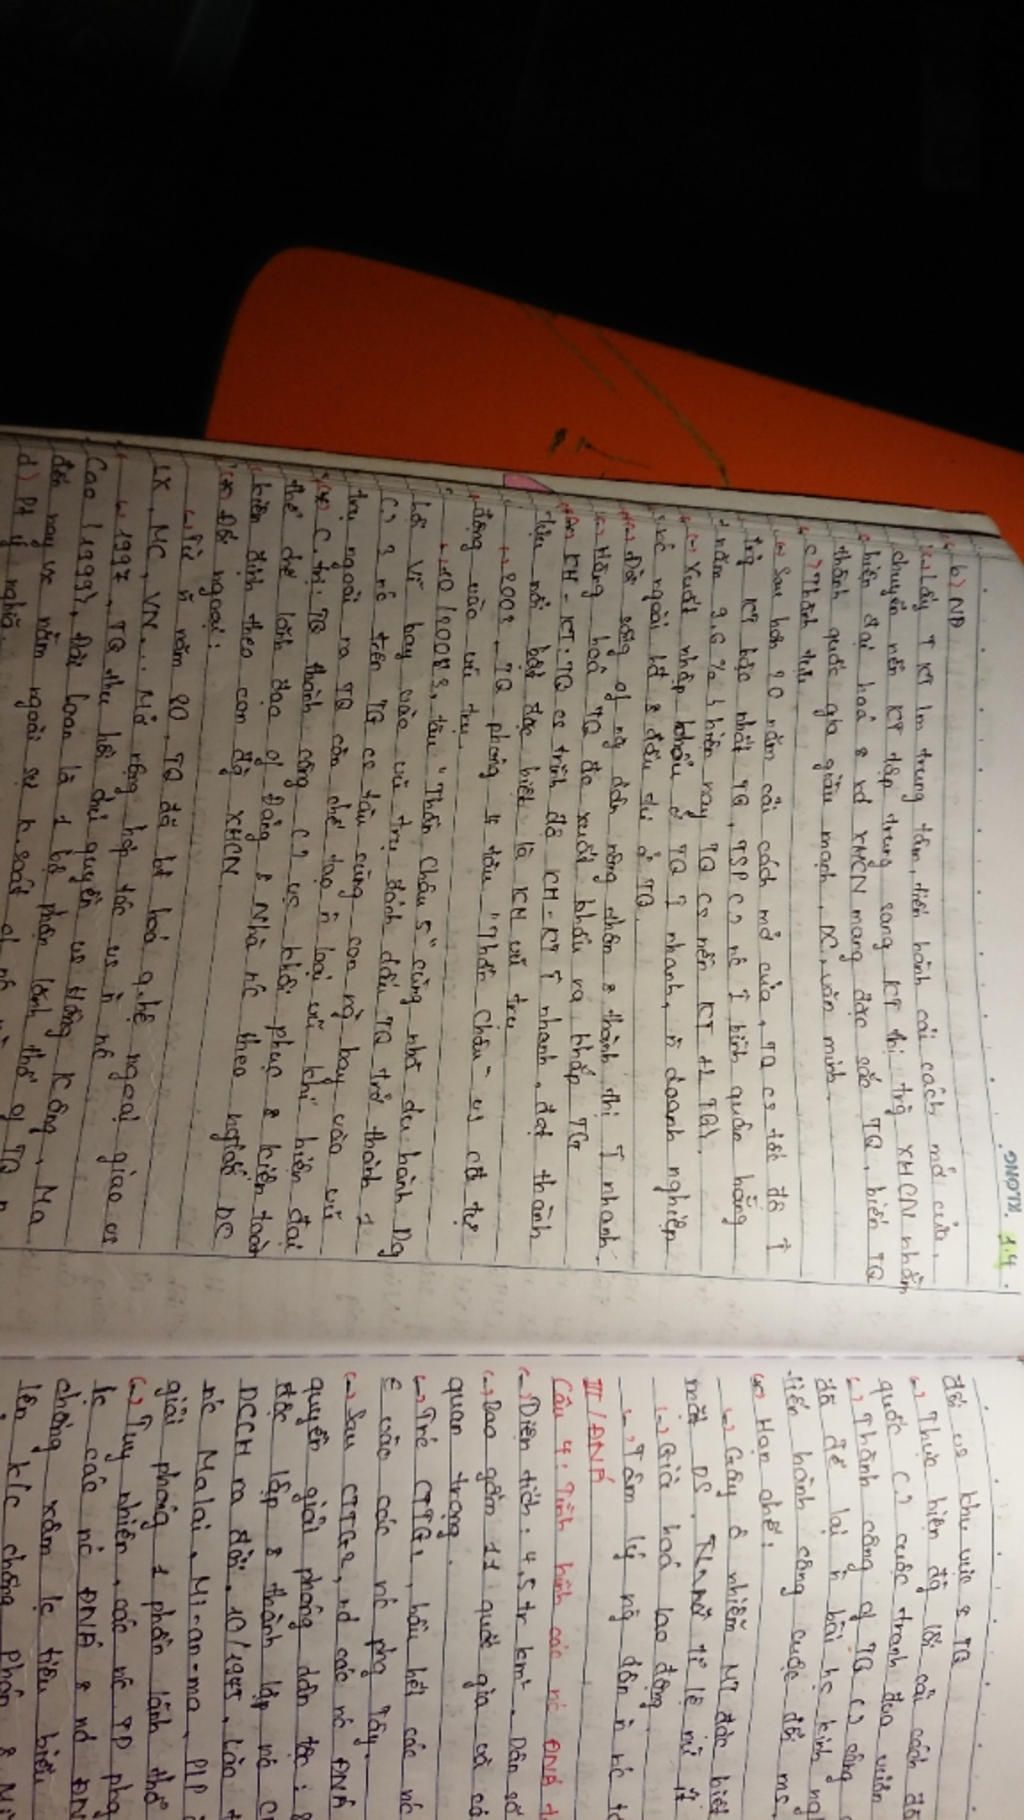 KLONG. 1.4.
b) ND
Lấy PT KT lm trung tâm, tiến hành cải cách mở cửa,
chuyển nền KT tập trung sang KT thị trg XHCN nhằm
hiện đại hoá & xd XHCN mang đặc sắc TQ, biến TQ
thành quốc gia giàu mạnh, DC, văn minh.
c) Thành tựu
Sau hơn 20 năm cải cách mở cửa, TQ cs tốc độ ↑
trg KT bậc nhất TG, TSP ↑ bình quân hằng
năm 9,6% hiện nay TQ cs nền KT t2 TG.
Xuất nhập khẩu ở TQ ↑ nhanh, ñ doanh nghiệp
nc ngoài hđ & đầu tư ở TQ.
Đời sống of ng dân nông thôn & thành thị ↑ nhanh.
Hàng hoá TQ đc xuất khẩu ra khắp TG
KH-KT: TQ cs trình độ KH-KT ↑ nhanh, đạt thành
tựu nổi bật đặc biệt là KH vũ trụ
2003, TQ phóng tàu "Thần Châu-
động vào vũ trụ.
10/2003, tàu "Thần Châu 5" cùng nhà du hành Dg
Lợi Vĩ bay vào vũ trụ đánh dấu TQ trở thành 1
3 nc trên TG cs tàu cùng con ng bay vào vũ
trụ ngoài ra TQ còn chế tạo ñ loại vũ khí hiện đại
C.trị: TQ thành công vs khôi phục & kiện toàn
thể chế lãnh đạo of Đảng & Nhà nc theo ngtắc DC
kiên định theo con đg XHCN
Đối ngoại:
Từ ñ năm 80, TQ đã bt hoá q.hệ ngoại giao vs
LX, MC, VN... Mở rộng hợp tác vs ñ nc
1997, TQ thu hồi chủ quyền vs Hồng Kông, Ma
Cao (1999), Đài Loan là 1 bộ phận lãnh thổ of TQ
đến nay vx nằm ngoài sự k.soát of nc
d) Pt ý nghĩa
đối vs khu vực & TQ
Thực hiện đg lối cải cách
quốc cuộc tranh đua
Thành công of TQ
đã để lại ñ bài hc kinh
tiến hành công cuộc đổi ms.
Hạn chế:
Gây ô nhiễm MT đặc biệt
mất DS. tỉ lệ nữ ít
Già hoá lao động
Tâm lý ng dân ñ nc
III/ĐNÁ
Câu 4: Tình hình các nc ĐNÁ
Diện tích: 4,5tr km². Dân số
Bao gồm 11 quốc gia và có
quan trọng.
Trc CTTG2, hầu hết các nc
vào các nc phg Tây.
Sau CTTG2, nd các nc ĐNÁ
quyền giải phóng dân tộc:
độc lập & thành lập nc
DCCH ra đời, 10/1945, Lào
nc Malai, Mi-an-ma, PLP
giải phóng 1 phần lãnh thổ
Tuy nhiên, các nc TD phg
lc các nc ĐNÁ & nd
chống xâm lc tiêu biểu
lên k/c chống Pháp &